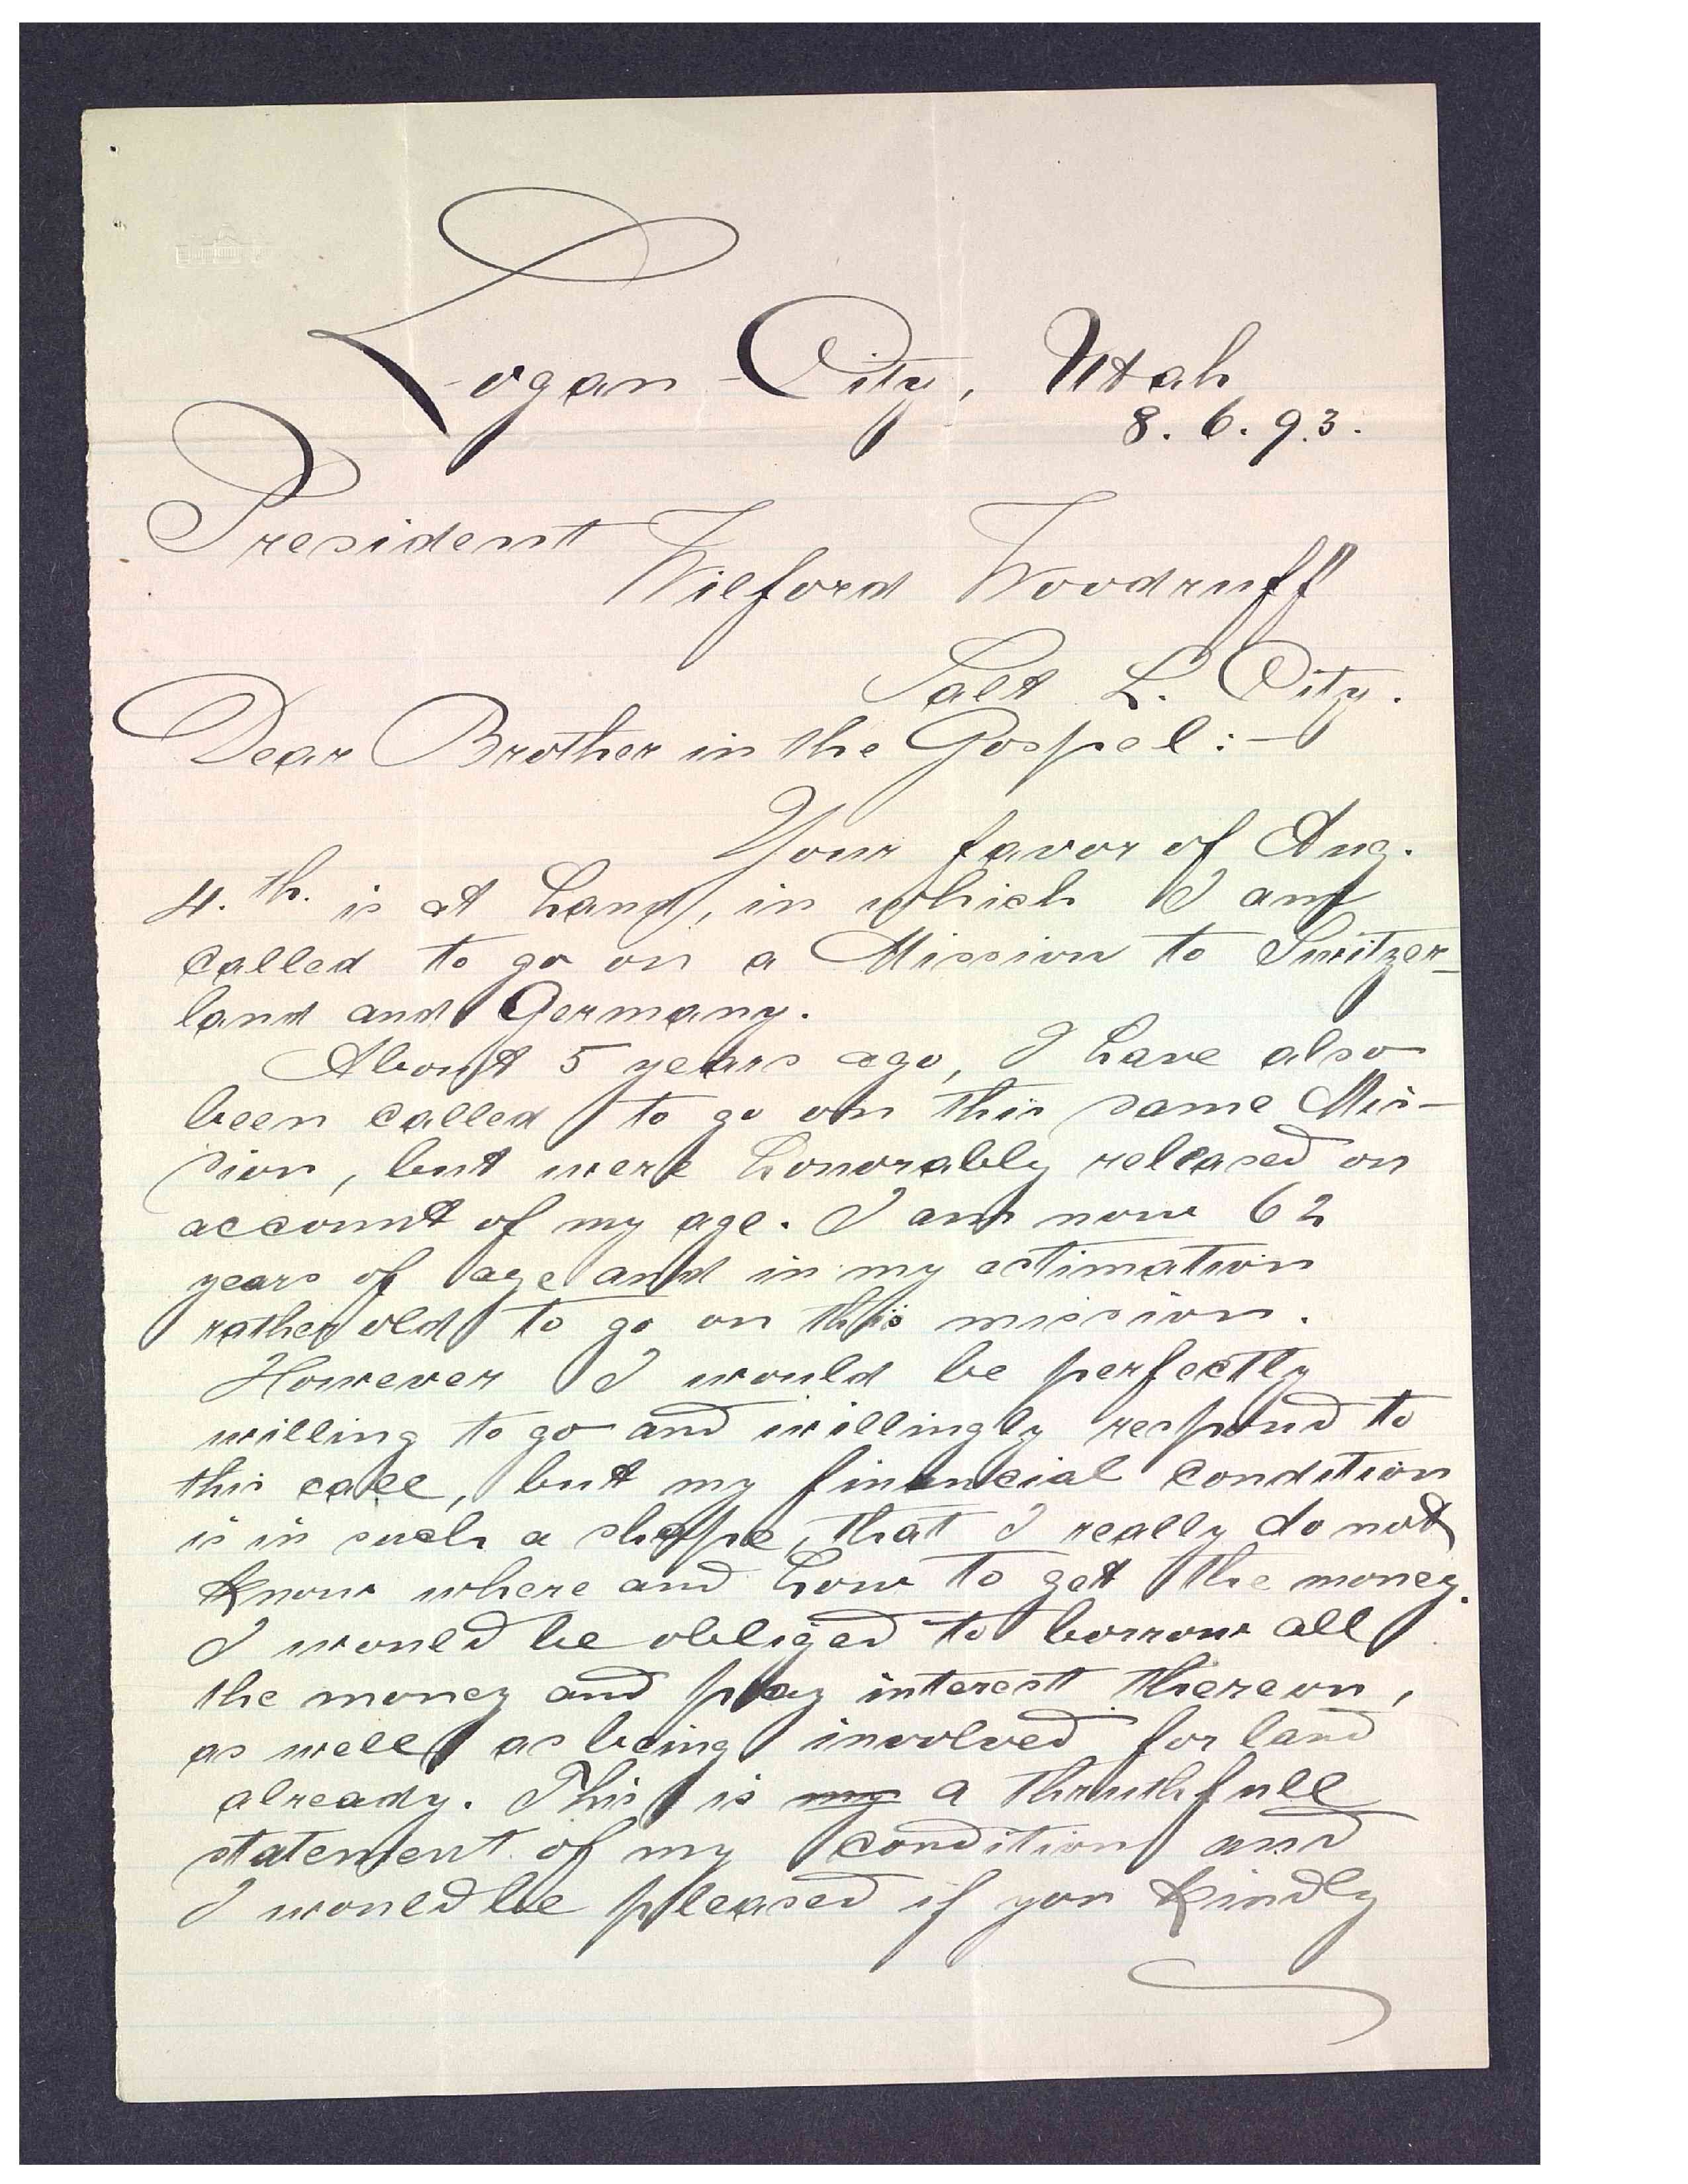 Logan City, Utah
8. 6. 93.
President
Wilford Woodruff
Salt L. City.
Dear Brother in the Gospel:-
Your favor of Aug.
4.th. is at hand, in which I am
called to go on a Mission to Switzer-
land and Germany.
About 5 years ago, I have also
been called to go on this same Mis-
sion, but were honorably released on
account of my age. I am now 62
years of age and in my estimation
rather old to go on this mission.
However I would be perfectly
willing to go and willingly respond to
this call, but my financial condition
is in such a shape, that I really do not
know where and how to get the money.
I would be obliged to borrow all
the money and pay interest thereon,
as well as being involved for land
already. This is my a thruthfull
statement of my condition and
I would be pleased if you kindly